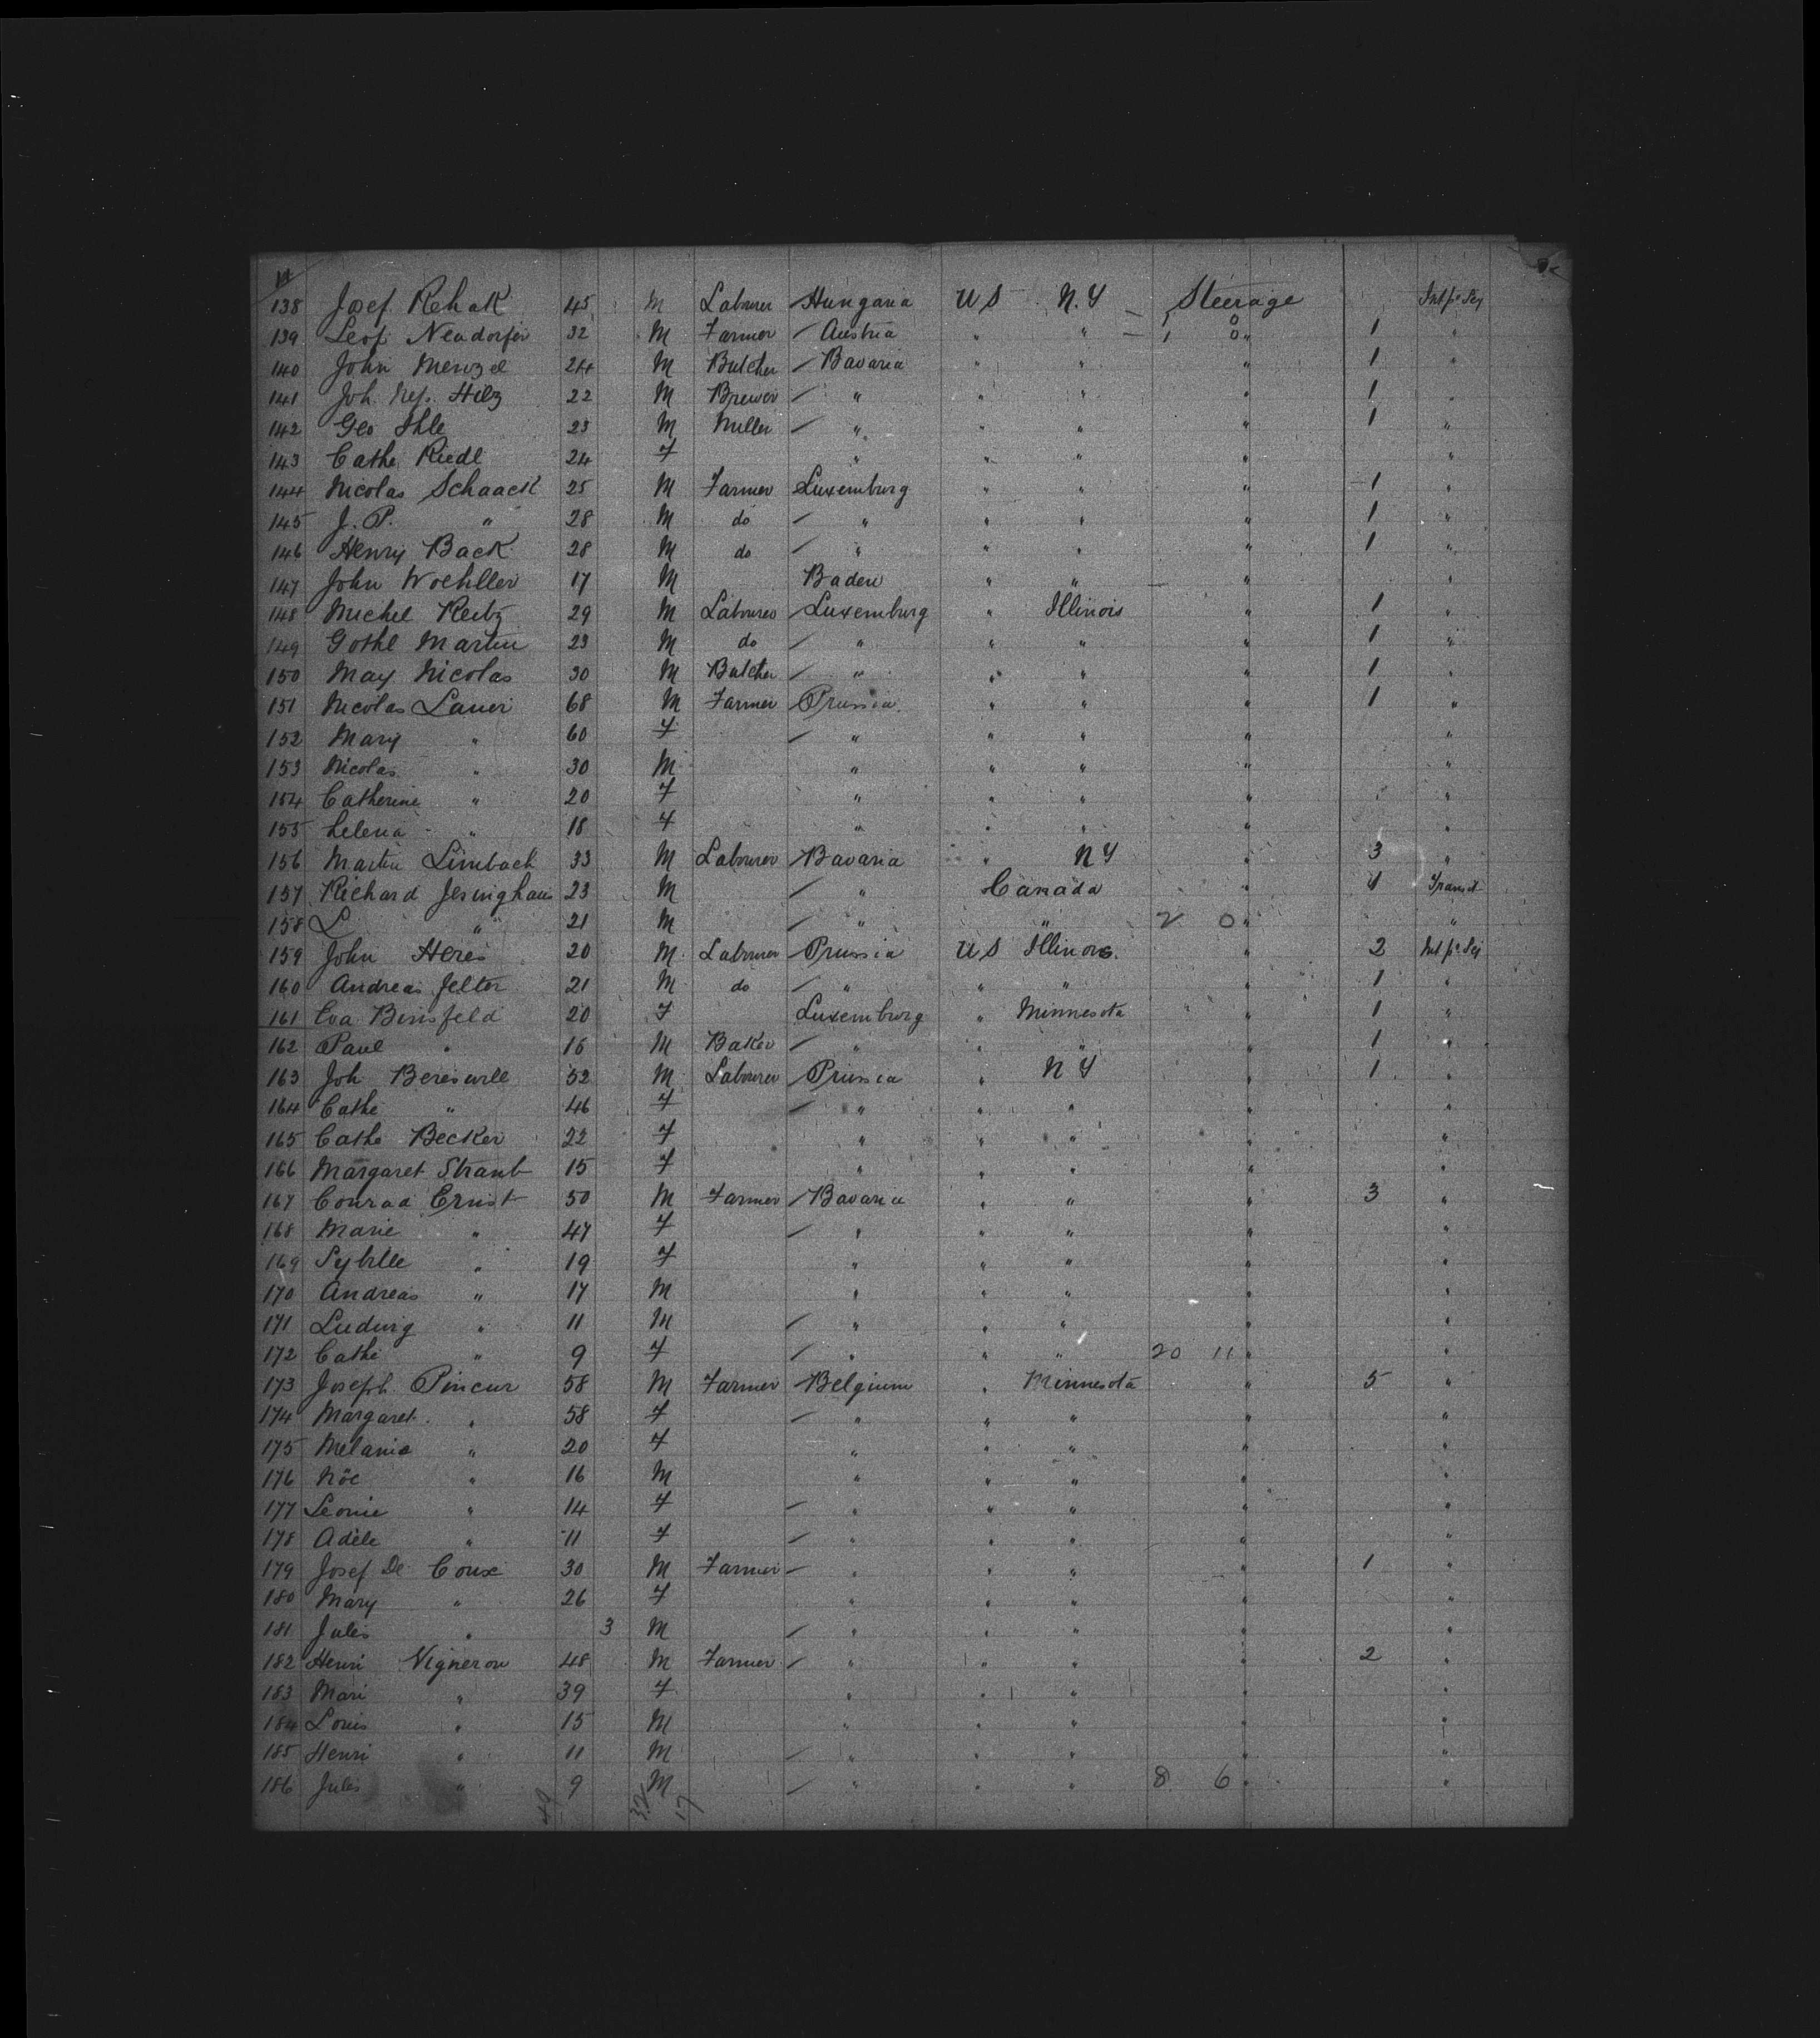 138 Josef Rehak 45 M Labourer Hungaria US N.Y Steerage Int pr Sej
139 Leop Neudorfer 32 M Farmer Austria " " 1 0 " 1 "
140 John Menzel 24 M Butcher Bavaria " " " 1 "
141 Joh. Nep. Hilz 22 M Brewer " " " " 1 "
142 Geo Ihle 23 M Miller " " " " 1 "
143 Cathe Riedl 24 F " " " " "
144 Nicolas Schaack 25 M Farmer Luxemburg " " " 1 "
145 J. P. " 28 M do " " " " 1 "
146 Henry Back 28 M do " " " " 1 "
147 John Woehller 17 M Baden " " " "
148 Michel Reitz 29 M Labourer Luxemburg " Illinois " 1 "
149 Gothl Martin 23 M do " " " " 1 "
150 May Nicolas 30 M Butcher " " " " 1 "
151 Nicolas Lauer 68 M Farmer Prussia " " " 1 "
152 Mary " 60 F " " " " "
153 Nicolas " 30 M " " " " "
154 Catherine " 20 F " " " " "
155 Lelena " 18 F " " " " "
156 Martin Limbach 33 M Labourer Bavaria " NY " 3 "
157 Richard Jesinghaus 23 M " Canada " 1 Transit
158 L " 21 M " " 2 0 " "
159 John Heres 20 M Labourer Prussia US Illinois " 2 Int pr Sej
160 Andreas Jelter 21 M do " " " " 1 "
161 Eva Binsfeld 20 F Luxemburg " Minnesota " 1 "
162 Paul " 16 M Baker " " " " 1 "
163 Joh Bereswill 52 M Labourer Prussia " NY " 1 "
164 Cathe " 46 F " " " " "
165 Cathe Becker 22 F " " " " "
166 Margaret Straub 15 F " " " " "
167 Conrad Ernst 50 M Farmer Bavaria " " " 3 "
168 Marie " 47 F " " " " "
169 Sybille " 19 F " " " " "
170 Andreas " 17 M " " " " "
171 Ludwig " 11 M " " " " "
172 Cathe " 9 F " " " 20 11 " "
173 Joseph Pincur 58 M Farmer Belgium " Minnesota " 5 "
174 Margaret " 58 F " " " " "
175 Melanie " 20 F " " " " "
176 Nöe " 16 M " " " " "
177 Leonie " 14 F " " " " "
178 Adèle " 11 F " " " " "
179 Josef De Coux 30 M Farmer " " " " 1 "
180 Mary " 26 F " " " " "
181 Jules " 3 M " " " " "
182 Henri Vigneron 48 M Farmer " " " " 2 "
183 Mari " 39 F " " " " "
184 Louis " 15 M " " " " "
185 Henri " 11 M " " " " "
186 Jules " 9 M " " " 8 6 " "
49 32 17